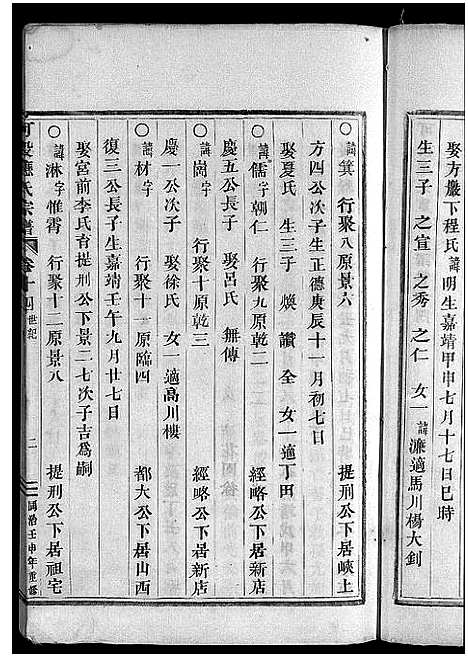 娶方巖下程氏 諱明生嘉靖甲申七月十七日巳時
生三子 之宣 之秀 之仁 女一 諱濂適馬川楊大釗
○諱箕 行聚八原景六 提刑公下居峽上
方四公次子 生正德庚辰十一月初七日
娶夏氏 生三子 煥 讚 全 女一適丁田
○諱儒字朝仁 行聚九原乾二 經略公下居新店
慶五公長子 娶呂氏 無傳
○諱崗字 行聚十原乾三 經略公下居新店
慶一公次子 娶徐氏 女一適高川樓
○諱材字 行聚十一原臨四 都大公下居山西
復三公長子生嘉靖壬午九月廿七日
娶宮前李氏育提刑公下景二七次子吉爲嗣
○諱淋字惟霄 行聚十二原景八 提刑公下居祖宅
應氏宗譜 卷十四 世記 二 同治壬申年重修